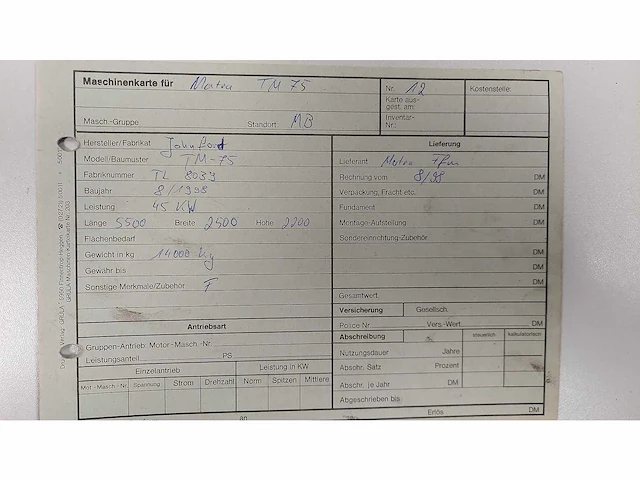 Maschinenkarte für Matra TM 75
Nr. 12
Kostenstelle:
Karte aus-
gest. am:
Masch.-Gruppe Standort MB
Inventar-
Nr.:
Hersteller/Fabrikat Johnford
Modell/Baumuster TM-75
Fabriknummer TL 8039
Baujahr 8/1998
Leistung 45 KW
Länge 5500 Breite 2500 Höhe 2200
Flächenbedarf
Gewicht in kg 14000 kg
Gewähr bis
Sonstige Merkmale/Zubehör F
Antriebsart
Gruppen-Antrieb: Motor-Masch.-Nr.
Leistungsanteil PS
Einzelantrieb Leistung in KW
Mot.-Masch.-Nr. Spannung Strom Drehzahl Norm Spitzen Mittlere
an
Lieferung
Lieferant Matra Ffm
Rechnung vom 8/98 DM
Verpackung, Fracht etc. DM
Fundament DM
Montage-Aufstellung DM
Sondereinrichtung-Zubehör
DM
DM
DM
Gesamtwert
Versicherung Gesellsch.
Police Nr. Vers.-Wert DM
Abschreibung steuerlich kalkulatorisch
Nutzungsdauer Jahre
Abschr. Satz Prozent
Abschr. je Jahr DM
Abgeschrieben bis
Erlös DM